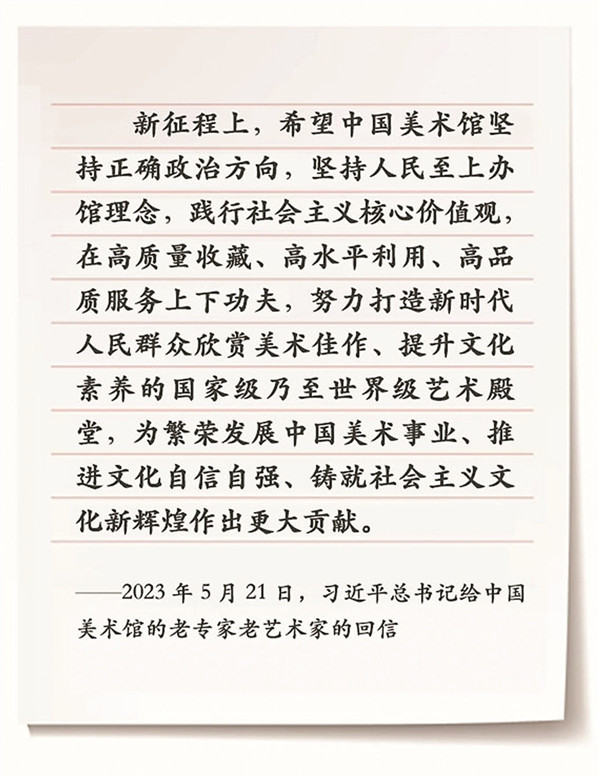 新征程上，希望中国美术馆坚
持正确政治方向，坚持人民至上办
馆理念，践行社会主义核心价值观，
在高质量收藏、高水平利用、高品
质服务上下功夫，努力打造新时代
人民群众欣赏美术佳作、提升文化
素养的国家级乃至世界级艺术殿
堂，为繁荣发展中国美术事业、推
进文化自信自强、铸就社会主义文
化新辉煌作出更大贡献。
——2023 年 5 月 21 日，习近平总书记给中国
美术馆的老专家老艺术家的回信